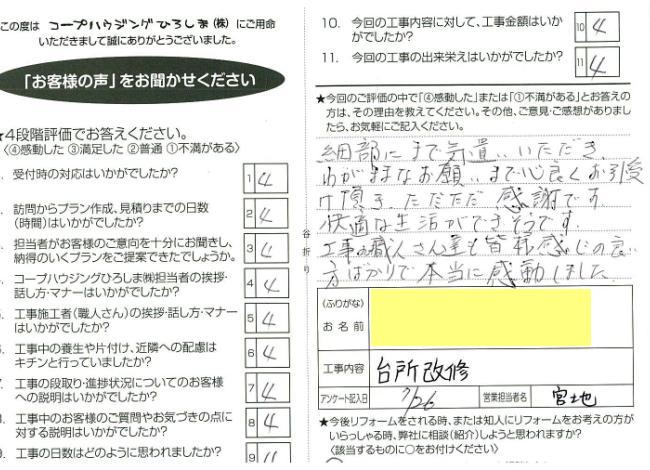 この度は コープハウジングひろしま(株) にご用命
いただきまして誠にありがとうございました。
「お客様の声」をお聞かせください
★4段階評価でお答えください。
〈④感動した ③満足した ②普通 ①不満がある〉
1. 受付時の対応はいかがでしたか? 1 4
訪問からプラン作成、見積りまでの日数
(時間)はいかがでしたか? 2 4
. 担当者がお客様のご意向を十分にお聞きし、
納得のいくプランをご提案できたでしょうか。 3 4
コープハウジングひろしま㈱担当者の挨拶・
話し方・マナーはいかがでしたか? 4 4
5. 工事施工者(職人さん)の挨拶・話し方・マナー
はいかがでしたか? 5 4
6. 工事中の養生や片付け、近隣への配慮は
キチンと行っていましたか? 6 4
7. 工事の段取り・進捗状況についてのお客様
への説明はいかがでしたか? 7 4
8. 工事中のお客様のご質問やお気づきの点に
対する説明はいかがでしたか? 8 4
9. 工事の日数はどのように思われましたか? 9
谷折り
10. 今回の工事内容に対して、工事金額はいか
がでしたか? 10 4
11. 今回の工事の出来栄えはいかがでしたか? 11 4
★今回のご評価の中で「④感動した」または「①不満がある」とお答えの
方は、その理由を教えてください。その他、ご意見・ご感想がありまし
たら、お気軽にご記入ください。
細部にまで気遣いいただき、
わがままなお願いまで心良くお引受
け頂き、ただただ感謝です。
快適な生活ができそうです。
工事の職人さん達も皆私感じの良い
方ばかりで本当に感動しました
(ふりがな)
お名前
工事内容 台所改修
アンケート記入日 7/26 営業担当者名 宮地
★今後リフォームをされる時、または知人にリフォームをお考えの方が
いらっしゃる時、弊社に相談(紹介)しようと思われますか?
〈該当するものに○をお付けください〉